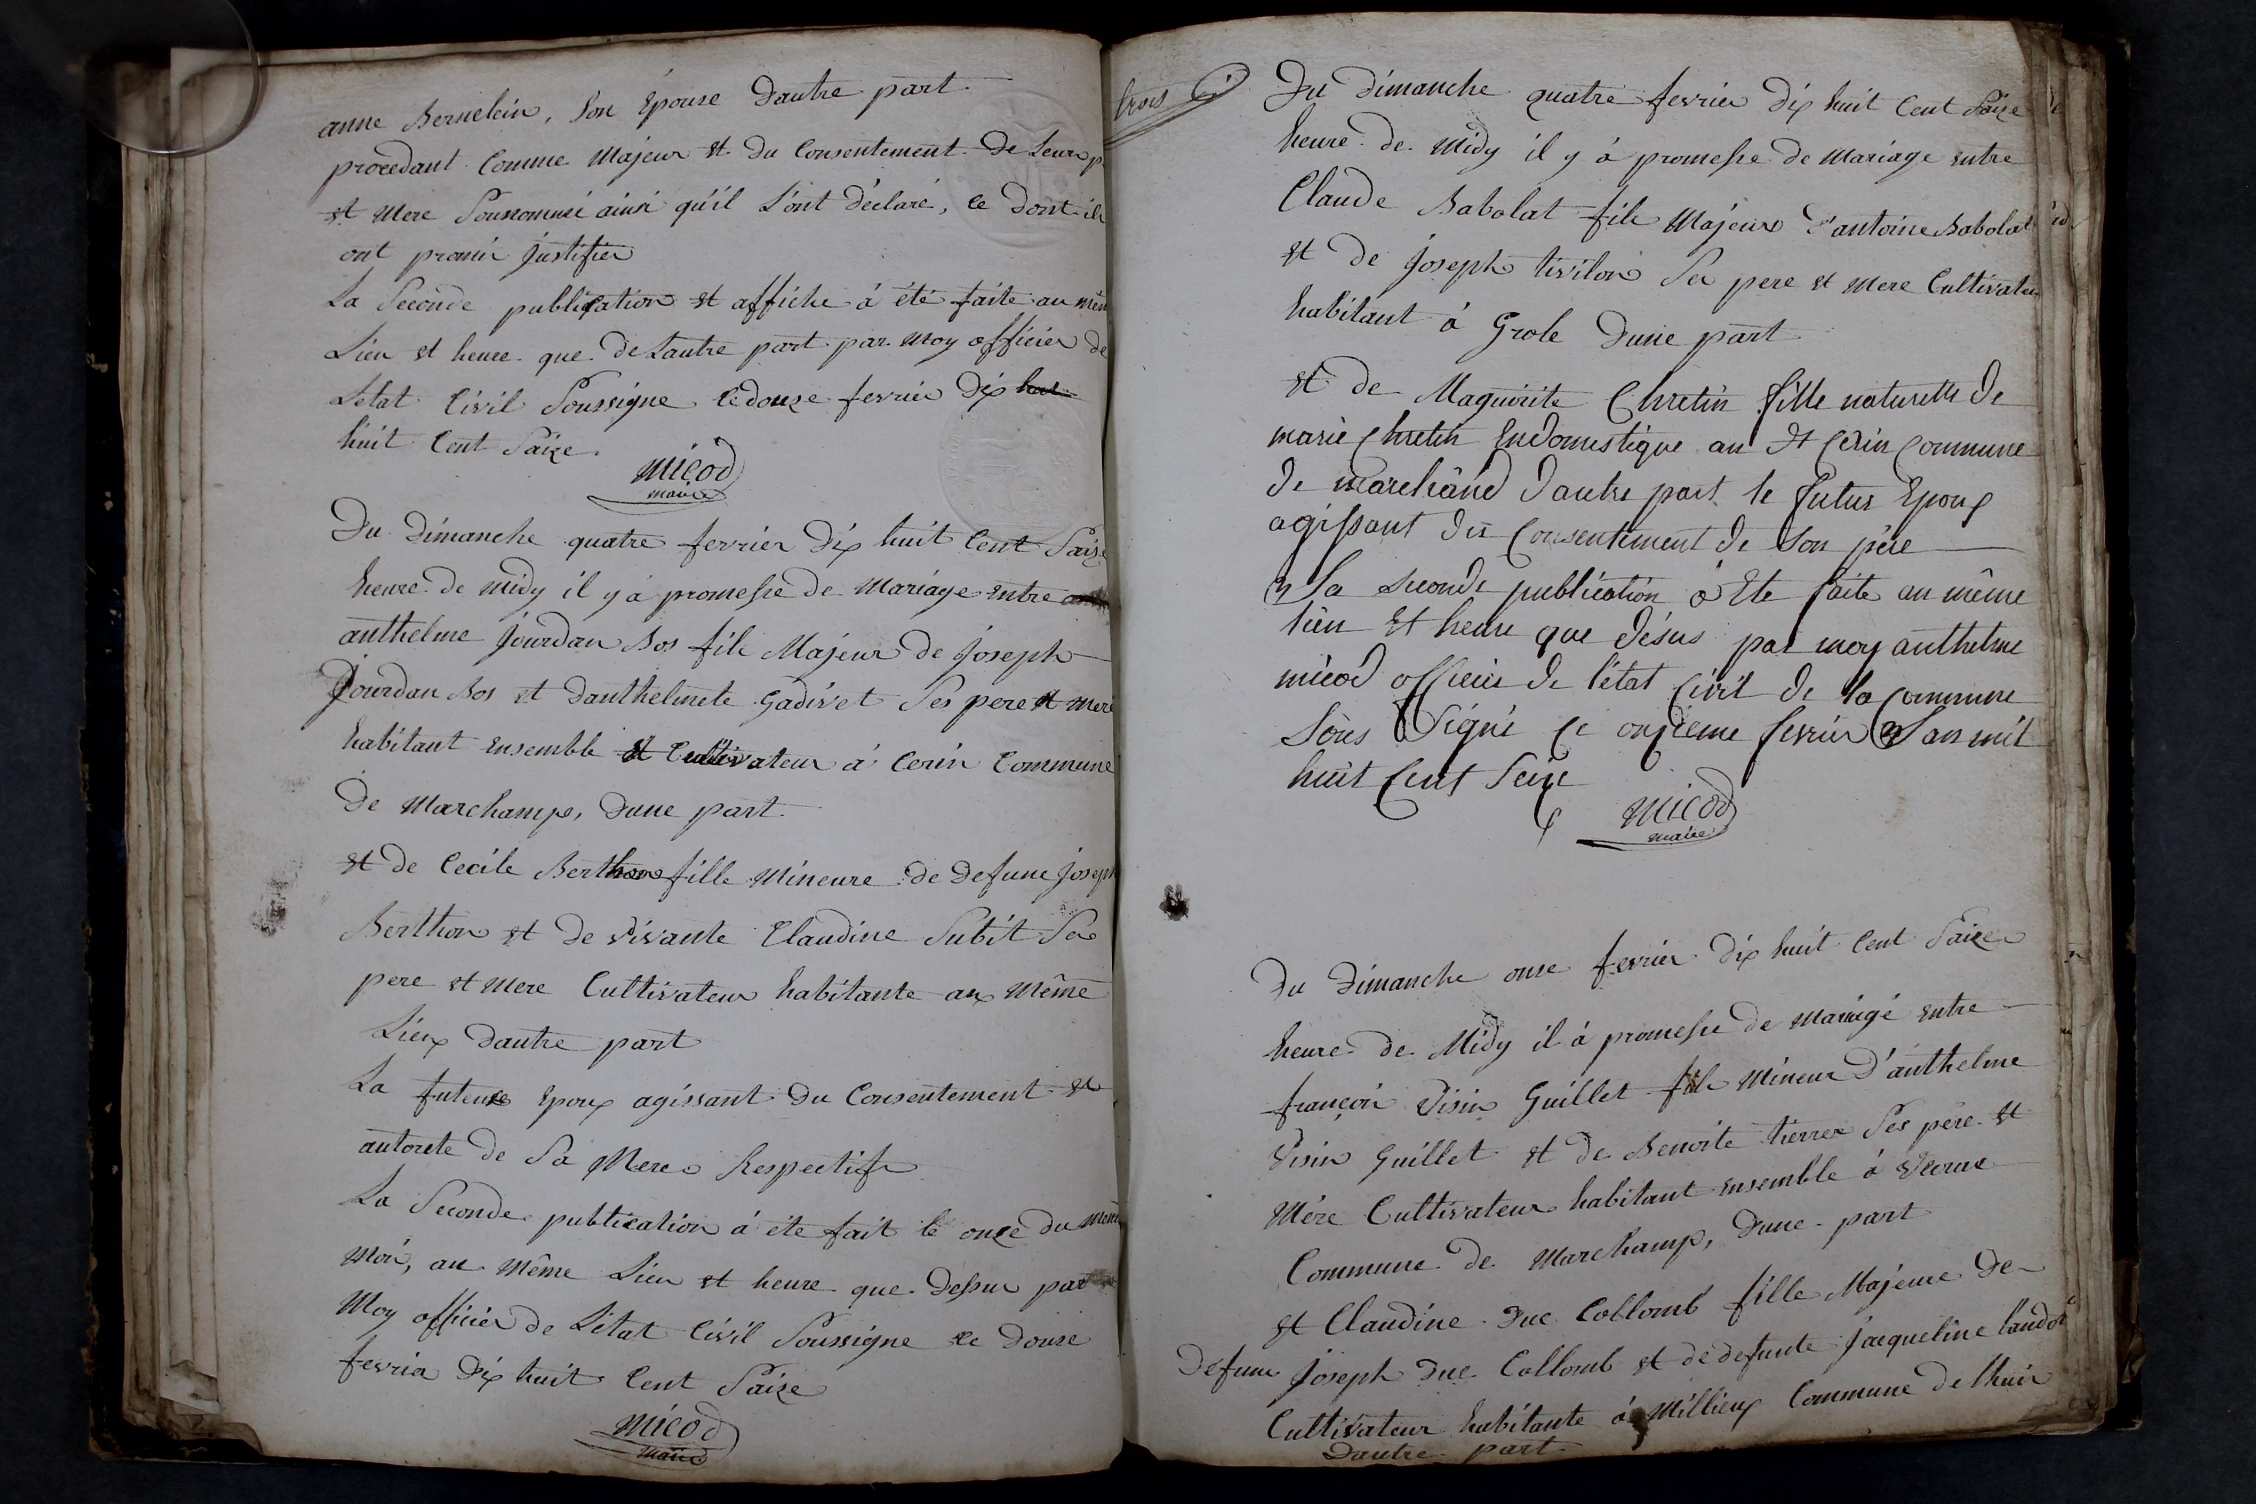 anne Bernelein, Son Epouse Dautre part
procedant Comme Majeur et du Consentement de Leurs p
et Mere Sousnommé ainsi qu'il L'ont déclaré, ce dont ils
ont promis justifier
La Seconde publication et affiche à été faite au mem
Lieu et heure que de Lautre part par Moy officier de
Létat Civil Soussigne le douze fevrier Dix
huit Cent Saize
Micod
maire
Du Dimanche quatre fevrier Dix huit Cent Saize
heure de midy il y à promesse de Mariage entre
anthelme Jourdan Bos fils Majeur de Joseph
Jourdan Bos et Danthelmete Gadivet Ses pere et mere
habitant ensemble et Cultivateur à Cerin Commune
de Marchamps, Dune part
et de Cecile Berthon fille Mineure de defunc Joseph
Berthon et de vivante Claudine Subit Ses
pere et Mere Cultivateur habitante aux Même
Lieux Dautre part
La future Epoux agissant du Consentement et
autorete de Sa Mere Respectifs
La Seconde publication à éte fait le onze du meme
Moi, au Même Lieu et heure que Dessus par
Moy officier de Létat Civil Soussigne le Douze
fevrier Dix huit Cent Saize
Micod
maire
trois
Du Dimanche quatre fevrier Dix huit Cent Saize
heure de Midy il y à promesse de Mariage entre
Claude Babolat fils Majeur D'antoine Babolat
et de Joseph tivilon Ses pere et Mere Cultivateur
habitant à Grole Dune part
et de Maguérite Chretin fille naturelle de
marie Chretin Endomestique au dt Cerin Commune
de marchand D'autre part le futur Epoux
agissant du Consentement de Son père
La Seconde publication à Ete faite au même
lieu Et heure que désus par moy anthelme
micod officier de l'état Civil de la Commune
Sous Signé Ce onzieme fevrier L'an mil
huit Cent Seize
Micod
maire
Du Dimanche onze fevrier Dix huit Cent Saize
heure de Midy il à promesse de Mariage entre
françois Visin Guillet fils Mineur D'anthelme
Visin Guillet et de Benoite tierrer Ses père et
Mére Cultivateur habitant ensemble à
Commune de Marchamp, Dune part
et Claudine Duc Collomb fille Majeure de
Defunc Joseph Duc Collomb et de defunte Jacqueline
Cultivateur habitante à Millieux Commune de lhuis
Dautre part